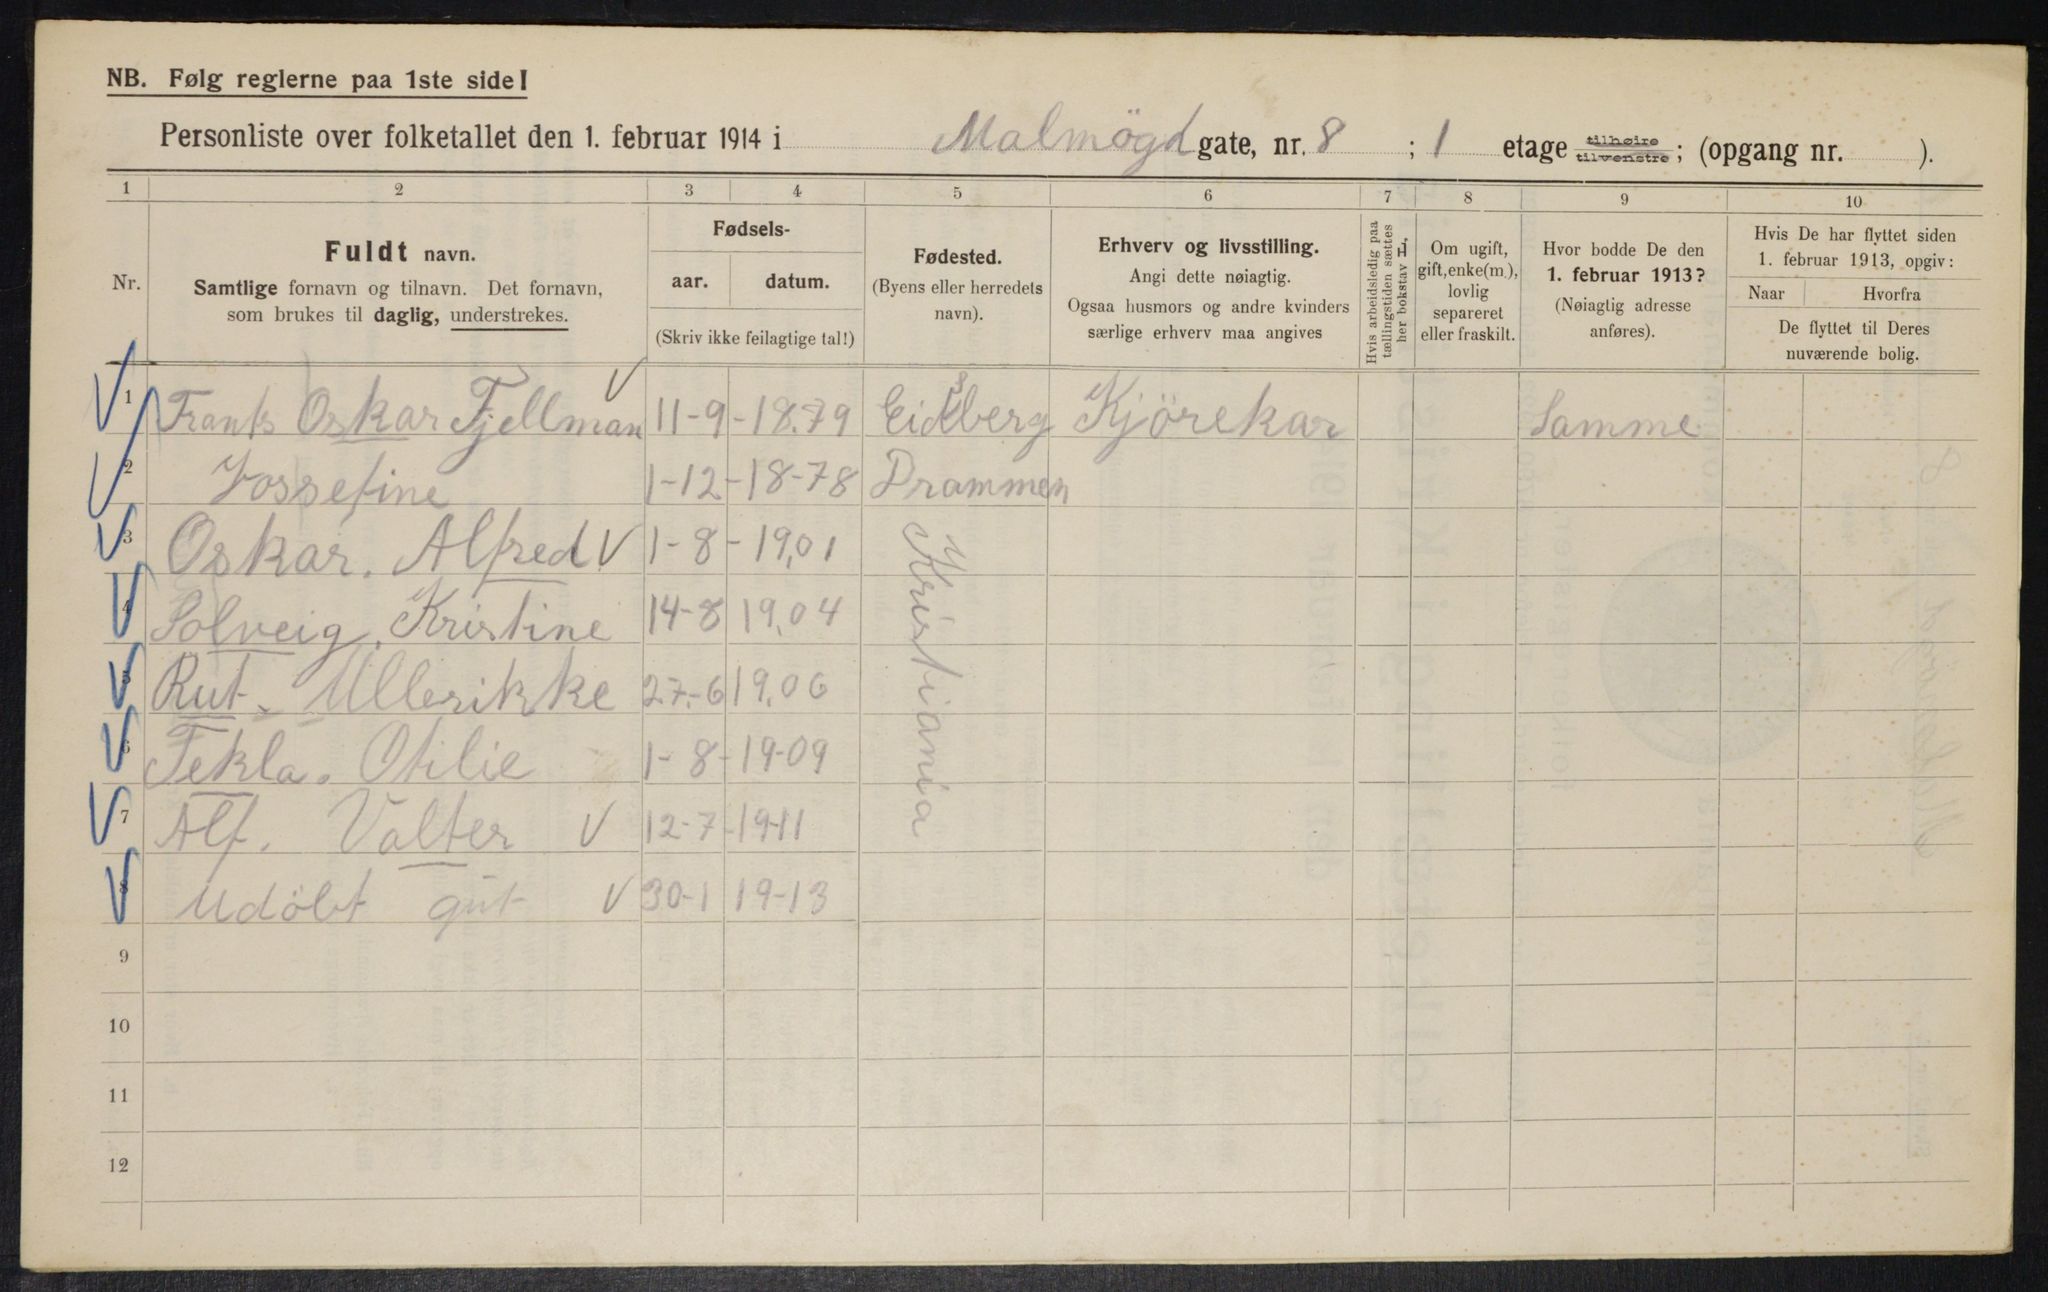 NB. Følg reglerne paa 1ste side!
Personliste over folketallet den 1. februar 1914 i Malmögd gate, nr. 8 ; 1 etage tilhøire/tilvenstre; (opgang nr. ).
1 2 3 4 5 6 7 8 9 10
Nr.
Fuldt navn.
Samtlige fornavn og tilnavn. Det fornavn,
som brukes til daglig, understrekes.
Fødsels-
aar. datum.
(Skriv ikke feilagtige tal!)
Fødested.
(Byens eller herredets
navn).
Erhverv og livsstilling.
Angi dette nøiagtig.
Ogsaa husmors og andre kvinders
særlige erhverv maa angives
Hvis arbeidsledig paa
tællingstiden sættes
her bokstav L.
Om ugift,
gift, enke(m.),
lovlig
separeret
eller fraskilt.
Hvor bodde De den
1. februar 1913?
(Nøiagtig adresse
anføres).
Hvis De har flyttet siden
1. februar 1913, opgiv:
Naar Hvorfra
De flyttet til Deres
nuværende bolig.
1 Frants Oskar Fjellman 11-9-18.79 Eidsberg Kjörekar Samme
2 Jossefine 1-12-18-78 Drammen
3 Oskar. Alfred 1-8-19,01 Kristiania
4 Solveig. Kristine 14-8 19,04
5 Rut. Ullerikke 27.-6 19,06
6 Tekla. Otilie 1-8-19-09
7 Alf. Valter 12-7-19-11
8 Udöbt gut 30-1 19-13
9
10
11
12